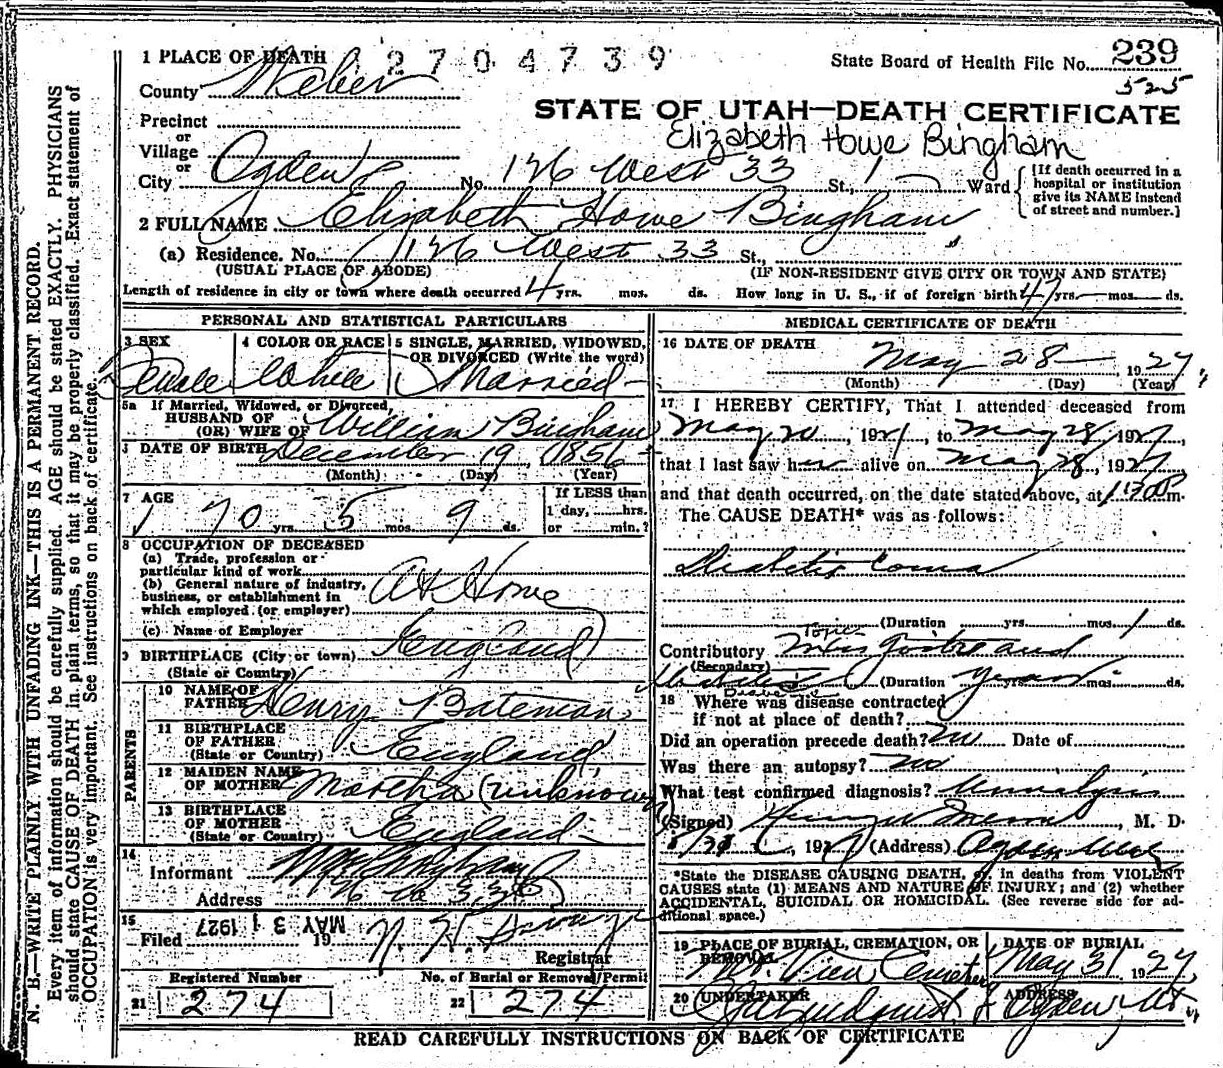 1 PLACE OF DEATH 2 7 0 4 7 3 9
State Board of Health File No. 239
525
County Weber
STATE OF UTAH—DEATH CERTIFICATE
Elizabeth Howe Bingham
Precinct
or
Village
or
City Ogden No. 126 West 33 St., 1 Ward
[If death occurred in a hospital or institution give its NAME instead of street and number.]
2 FULL NAME Elizabeth Howe Bingham
(a) Residence. No. 126 West 33 St.,
(USUAL PLACE OF ABODE) (IF NON-RESIDENT GIVE CITY OR TOWN AND STATE)
Length of residence in city or town where death occurred 4 yrs. mos. ds. How long in U. S., if of foreign birth 47 yrs. mos. ds.
PERSONAL AND STATISTICAL PARTICULARS
3 SEX Female
4 COLOR OR RACE White
5 SINGLE, MARRIED, WIDOWED, OR DIVORCED (Write the word) Married
5a If Married, Widowed, or Divorced,
HUSBAND OF
(OR) WIFE OF William Bingham
6 DATE OF BIRTH December 19 1856
(Month) (Day) (Year)
7 AGE 70 yrs. 5 mos. 9 ds.
If LESS than
1 day, hrs.
or min.?
8 OCCUPATION OF DECEASED
(a) Trade, profession or
particular kind of work
(b) General nature of industry,
business, or establishment in
which employed (or employer) At Home
(c) Name of Employer
9 BIRTHPLACE (City or town) England
(State or Country)
PARENTS
10 NAME OF
FATHER Henry Bateman
11 BIRTHPLACE
OF FATHER
(State or Country) England
12 MAIDEN NAME
OF MOTHER Martha (unknown)
13 BIRTHPLACE
OF MOTHER
(State or Country) England
14
Informant Wm Bingham
Address
15
Filed MAY 31 1927 19 N. H.
Registrar
Registered Number No. of Burial or Removal Permit
21 274 22 274
MEDICAL CERTIFICATE OF DEATH
16 DATE OF DEATH
May 28 1927
(Month) (Day) (Year)
17 I HEREBY CERTIFY, That I attended deceased from
May 20, 1927, to May 28, 1927,
that I last saw her alive on May 28, 1927
and that death occurred, on the date stated above, at m.
The CAUSE DEATH* was as follows:
Diabetic Coma
(Duration yrs. mos. 1 ds.
Contributory Toxic Goitre and
(Secondary)
Diabetes (Duration years yrs. mos. ds.
18 Where was disease contracted
if not at place of death?
Did an operation precede death? no Date of
Was there an autopsy? no
What test confirmed diagnosis? Urinalysis
(Signed) , M. D.
, 1927 (Address) Ogden Utah
*State the DISEASE CAUSING DEATH, or in deaths from VIOLENT
CAUSES state (1) MEANS AND NATURE OF INJURY; and (2) whether
ACCIDENTAL, SUICIDAL OR HOMICIDAL. (See reverse side for ad-
ditional space.)
19 PLACE OF BURIAL, CREMATION, OR
REMOVAL
Mt. View Cemetery
DATE OF BURIAL
May 31 1927
20 UNDERTAKER
Lindquist
ADDRESS
Ogden, Ut.
READ CAREFULLY INSTRUCTIONS ON BACK OF CERTIFICATE
N. B.—WRITE PLAINLY WITH UNFADING INK—THIS IS A PERMANENT RECORD.
Every item of information should be carefully supplied. AGE should be stated EXACTLY. PHYSICIANS
should state CAUSE OF DEATH in plain terms, so that it may be properly classified. Exact statement of
OCCUPATION is very important. See instructions on back of certificate.